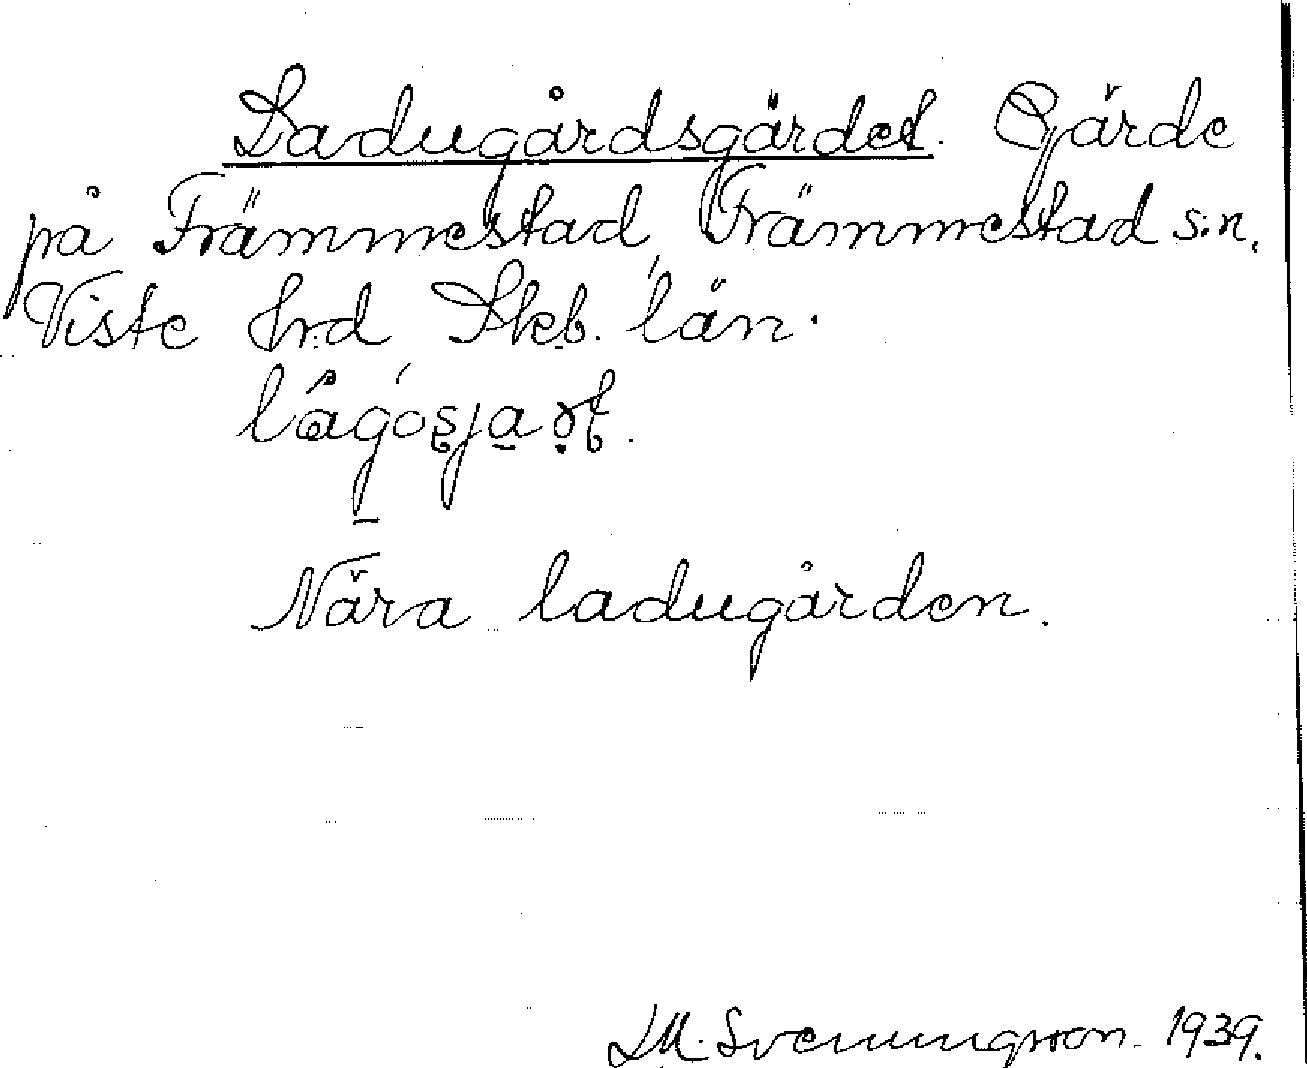 Ladugårdsgärdet. Gärde
på Främmestad, Främmestad s:n,
Viste hrd Skb. län.
Nära ladugården.
Svenungsson 1939.